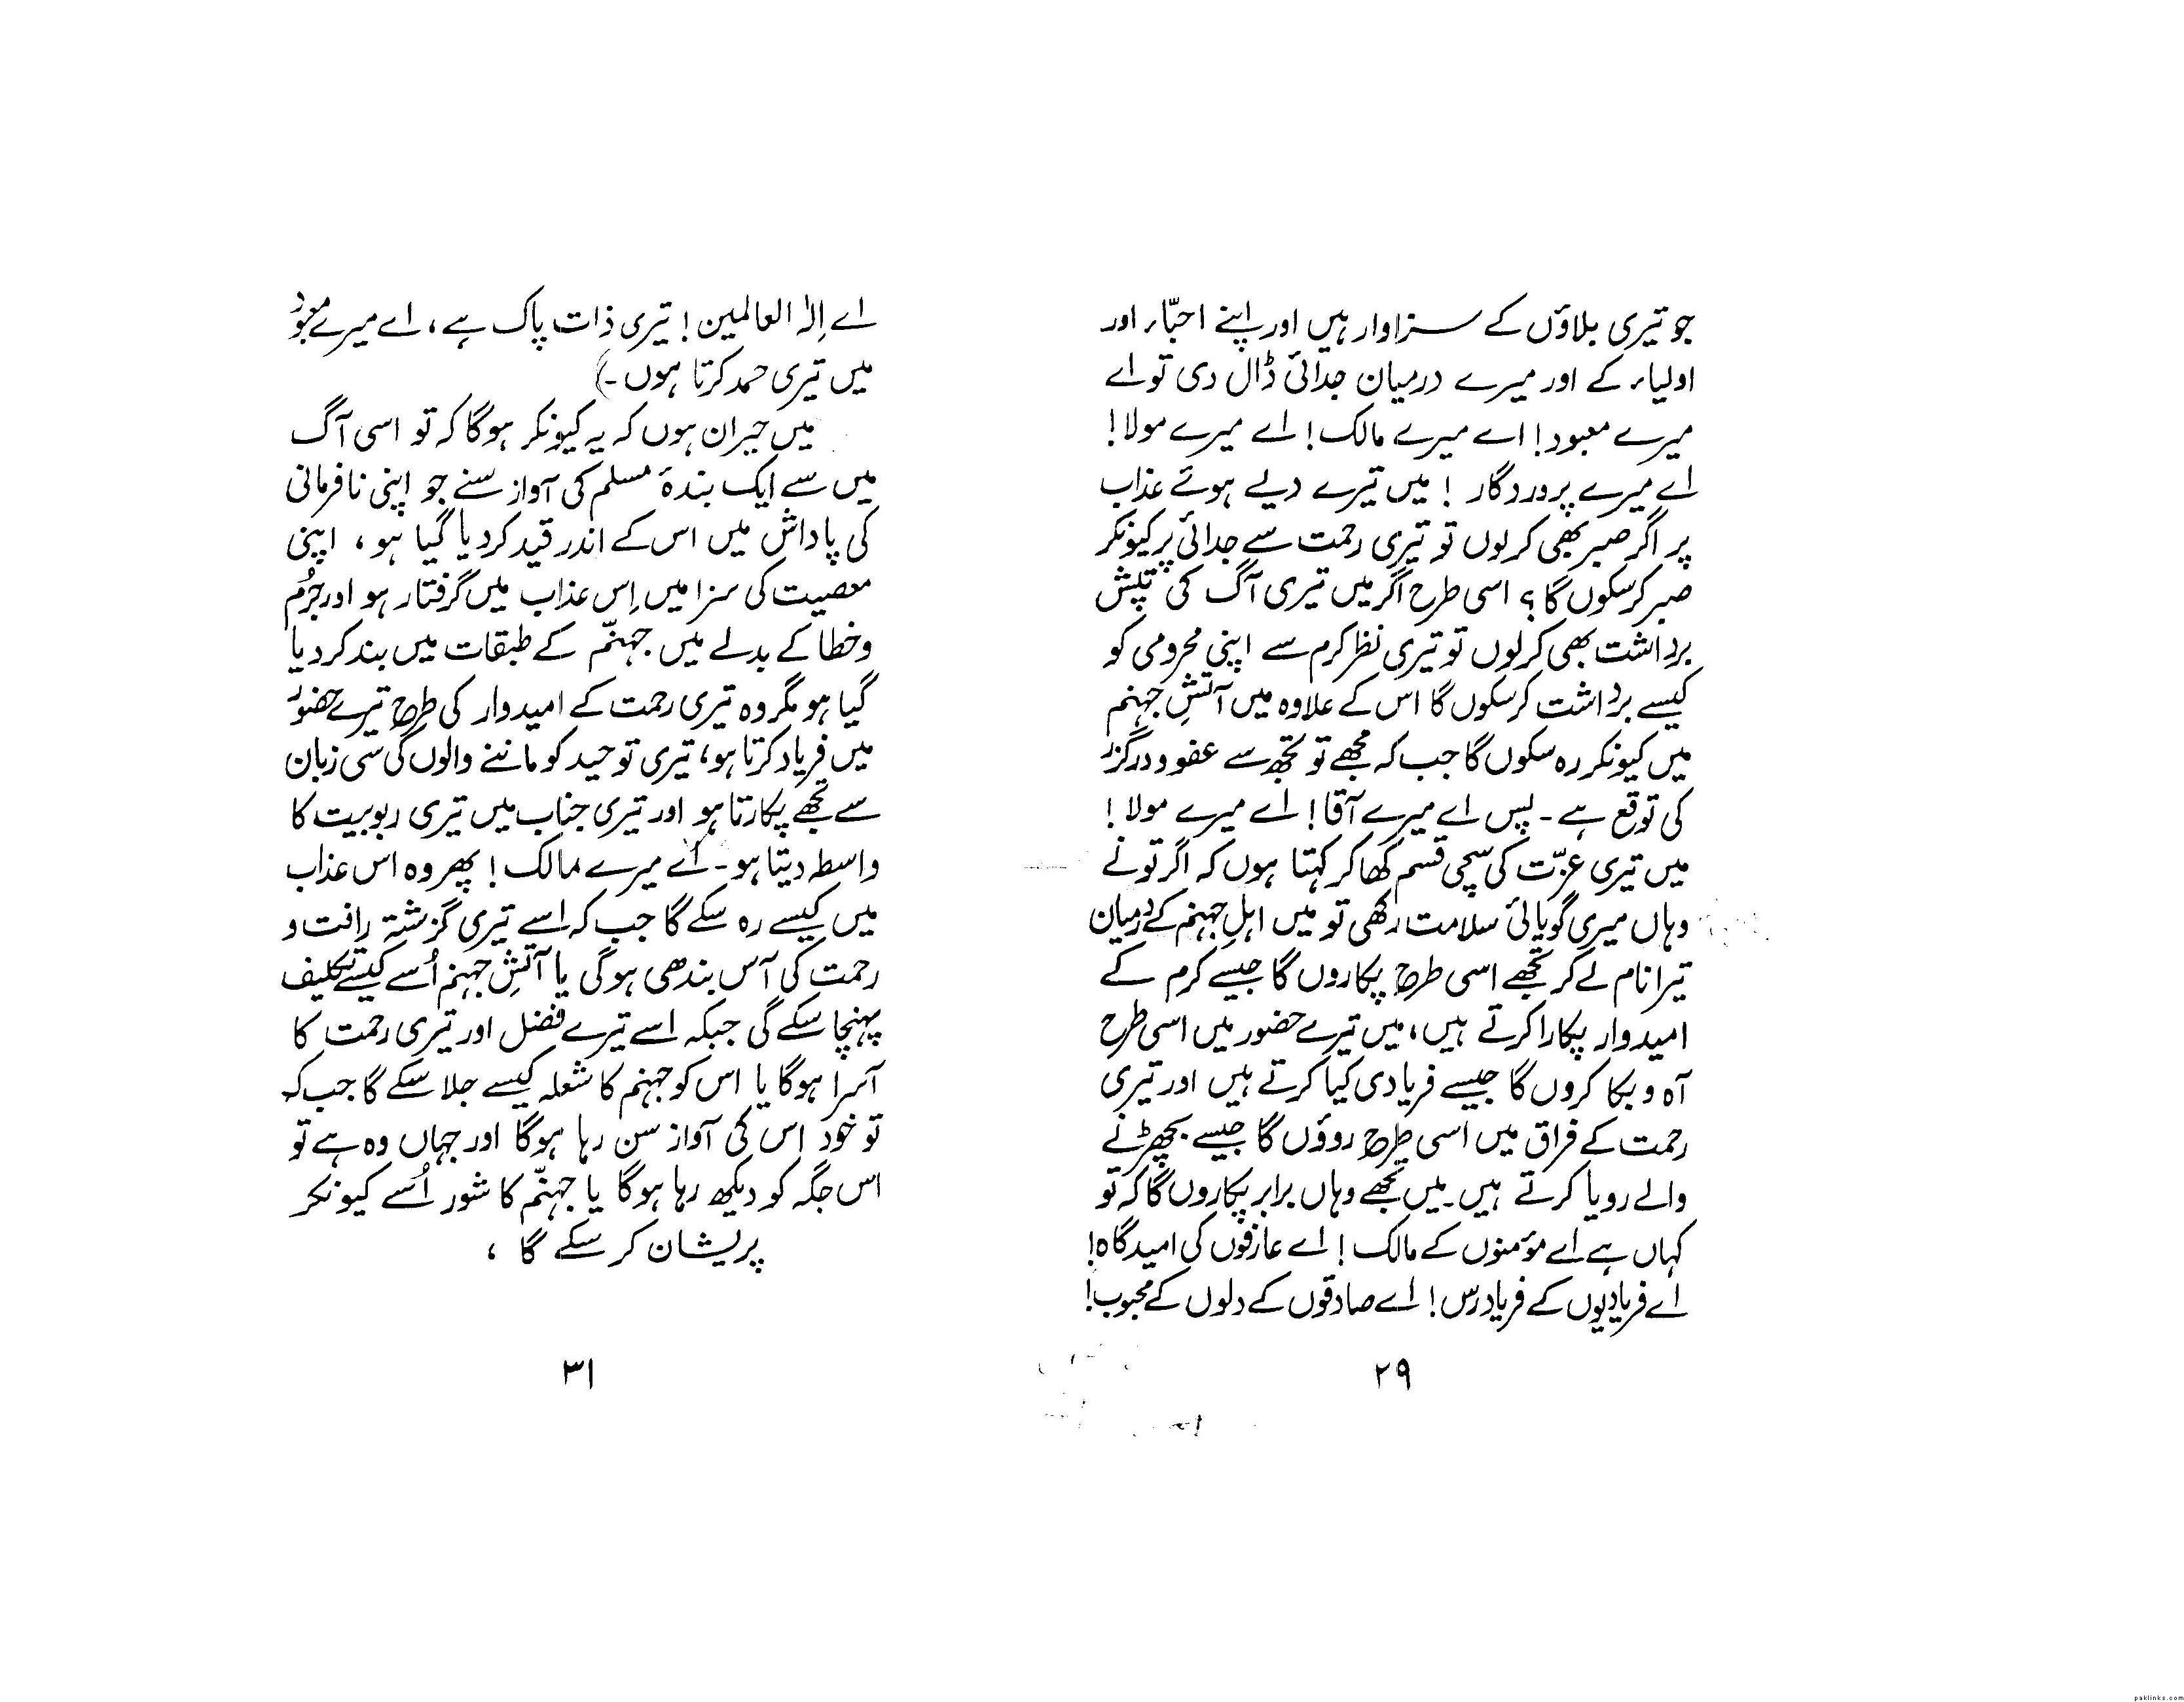 جو تیری بلاؤں کے سزاوار ہیں اور اپنے احبّاء اور
اولیاء کے اور میرے درمیان جدائی ڈال دی تو اے
میرے معبود! اے میرے مالک! اے میرے مولا!
اے میرے پروردگار! میں تیرے دیے ہوئے عذاب
پر اگر صبر بھی کر لوں تو تیری رحمت سے جدائی پر کیونکر
صبر کر سکوں گا؟ اسی طرح اگر میں تیری آگ کی تپش
برداشت بھی کر لوں تو تیری نظر کرم سے اپنی محرومی کو
کیسے برداشت کر سکوں گا اس کے علاوہ میں آتشِ جہنم
میں کیونکر رہ سکوں گا جب کہ مجھے تو تجھ سے عفو و درگزر
کی توقع ہے ۔ پس اے میرے آقا! اے میرے مولا!
میں تیری عزّت کی سچی قسم کھا کر کہتا ہوں کہ اگر تو نے
وہاں میری گویائی سلامت رکھی تو میں اہلِ جہنم کے درمیان
تیرا نام لے کر تجھے اسی طرح پکاروں گا جیسے کرم کے
امیدوار پکارا کرتے ہیں، میں تیرے حضور میں اسی طرح
آہ و بکا کروں گا جیسے فریادی کیا کرتے ہیں اور تیری
رحمت کے فراق میں اسی طرح روؤں گا جیسے بچھڑنے
والے رویا کرتے ہیں۔ میں تجھے وہاں برابر پکاروں گا کہ تو
کہاں ہے اے مؤمنوں کے مالک! اے عارفوں کی امیدگاہ!
اے فریادیوں کے فریادرس! اے صادقوں کے دلوں کے محبوب!
۲۹
اے اِلٰہ العالمین! تیری ذات پاک ہے، اے میرے معبود
میں تیری حمد کرتا ہوں۔)
میں حیران ہوں کہ یہ کیونکر ہوگا کہ تو اسی آگ
میں سے ایک بندۂ مسلم کی آواز سنے جو اپنی نافرمانی
کی پاداش میں اس کے اندر قید کر دیا گیا ہو، اپنی
معصیت کی سزا میں اِس عذاب میں گرفتار ہو اور جُرم
و خطا کے بدلے میں جہنّم کے طبقات میں بند کر دیا
گیا ہو مگر وہ تیری رحمت کے امیدوار کی طرح تیرے حضور
میں فریاد کرتا ہو، تیری توحید کو ماننے والوں کی سی زبان
سے تجھے پکارتا ہو اور تیری جناب میں تیری ربوبیت کا
واسطہ دیتا ہو۔ اے میرے مالک! پھر وہ اس عذاب
میں کیسے رہ سکے گا جب کہ اسے تیری گزشتہ رافت و
رحمت کی آس بندھی ہوگی یا آتشِ جہنم اُسے کیسے تکلیف
پہنچا سکے گی جبکہ اسے تیرے فضل اور تیری رحمت کا
آسرا ہوگا یا اس کو جہنم کا شعلہ کیسے جلا سکے گا جب کہ
تو خود اس کی آواز سن رہا ہوگا اور جہاں وہ ہے تو
اس جگہ کو دیکھ رہا ہوگا یا جہنّم کا شور اُسے کیونکر
پریشان کر سکے گا ،
۳۱
paklinks.com